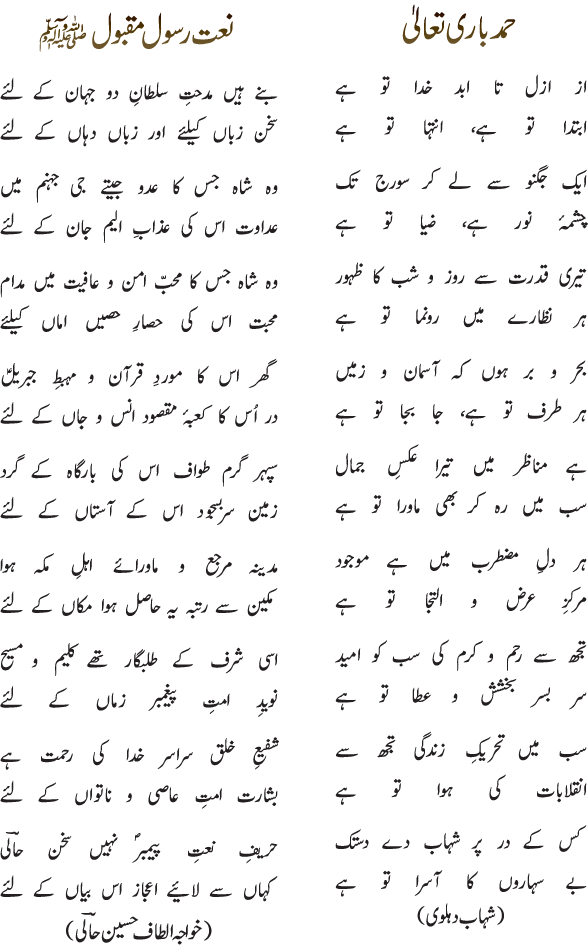 حمد باری تعالیٰ
از ازل تا ابد خدا تو ہے
ابتدا تو ہے، انتہا تو ہے
ایک جگنو سے لے کر سورج تک
چشمۂ نور ہے، ضیا تو ہے
تیری قدرت سے روز و شب کا ظہور
ہر نظارے میں رونما تو ہے
بحر و بر ہوں کہ آسمان و زمیں
ہر طرف تو ہے، جا بجا تو ہے
ہے مناظر میں تیرا عکسِ جمال
سب میں رہ کر بھی ماورا تو ہے
ہر دلِ مضطرب میں ہے موجود
مرکزِ عرض و التجا تو ہے
تجھ سے رحم و کرم کی سب کو امید
سر بسر بخشش و عطا تو ہے
سب میں تحریکِ زندگی تجھ سے
انقلابات کی ہوا تو ہے
کس کے در پر شہاب دے دستک
بے سہاروں کا آسرا تو ہے
(شہاب دہلوی)
نعت رسول مقبول ﷺ
بنے ہیں مدحتِ سلطانِ دو جہان کے لئے
سخن زباں کیلئے اور زباں دہاں کے لئے
وہ شاہ جس کا عدو جیتے جی جہنم میں
عداوت اس کی عذابِ الیم جان کے لئے
وہ شاہ جس کا محبّ امن و عافیت میں مدام
محبت اس کی حصارِ حصیں اماں کیلئے
گھر اس کا موردِ قرآن و مہبطِ جبریلؑ
در اُس کا کعبۂ مقصود انس و جاں کے لئے
سپہر گرم طواف اس کی بارگاہ کے گرد
زمین سربسجود اس کے آستاں کے لئے
مدینہ مرجع و ماورائے اہلِ مکہ ہوا
مکین سے رتبہ یہ حاصل ہوا مکاں کے لئے
اسی شرف کے طلبگار تھے کلیم و مسیح
نویدِ امتِ پیغمبر زماں کے لئے
شفیعِ خلق سراسر خدا کی رحمت ہے
بشارت امتِ عاصی و ناتواں کے لئے
حریفِ نعتِ پیمبرؐ نہیں سخن حالیؔ
کہاں سے لائیے اعجاز اس بیاں کے لئے
(خواجہ الطاف حسین حالیؔ)